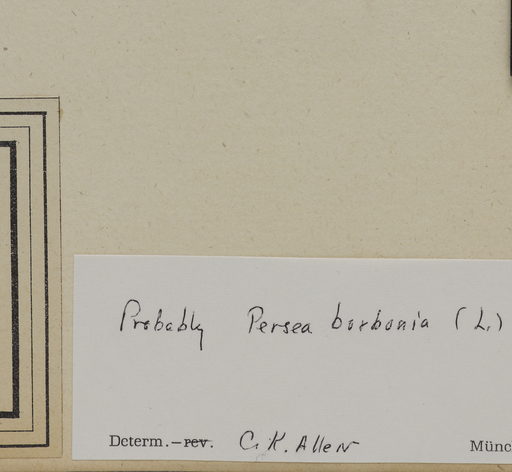 Probably Persea borbonia (L.)
Determ.—rev. C. K. Allen Münc